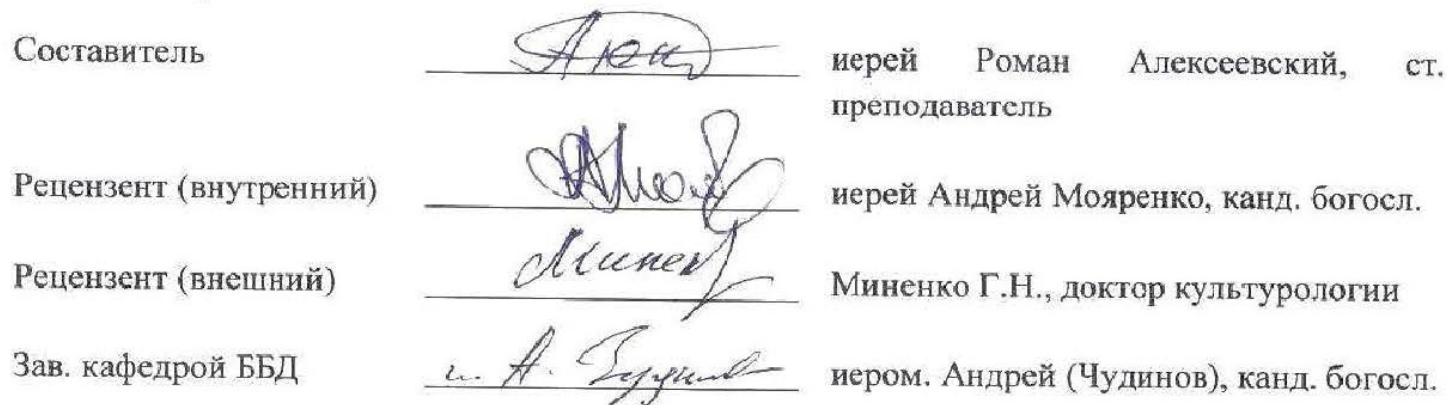 Составитель иерей Роман Алексеевский, ст.
преподаватель
Рецензент (внутренний) иерей Андрей Мояренко, канд. богосл.
Рецензент (внешний) Минен Миненко Г.Н., доктор культурологии
Зав. кафедрой ББД и. А. иером. Андрей (Чудинов), канд. богосл.